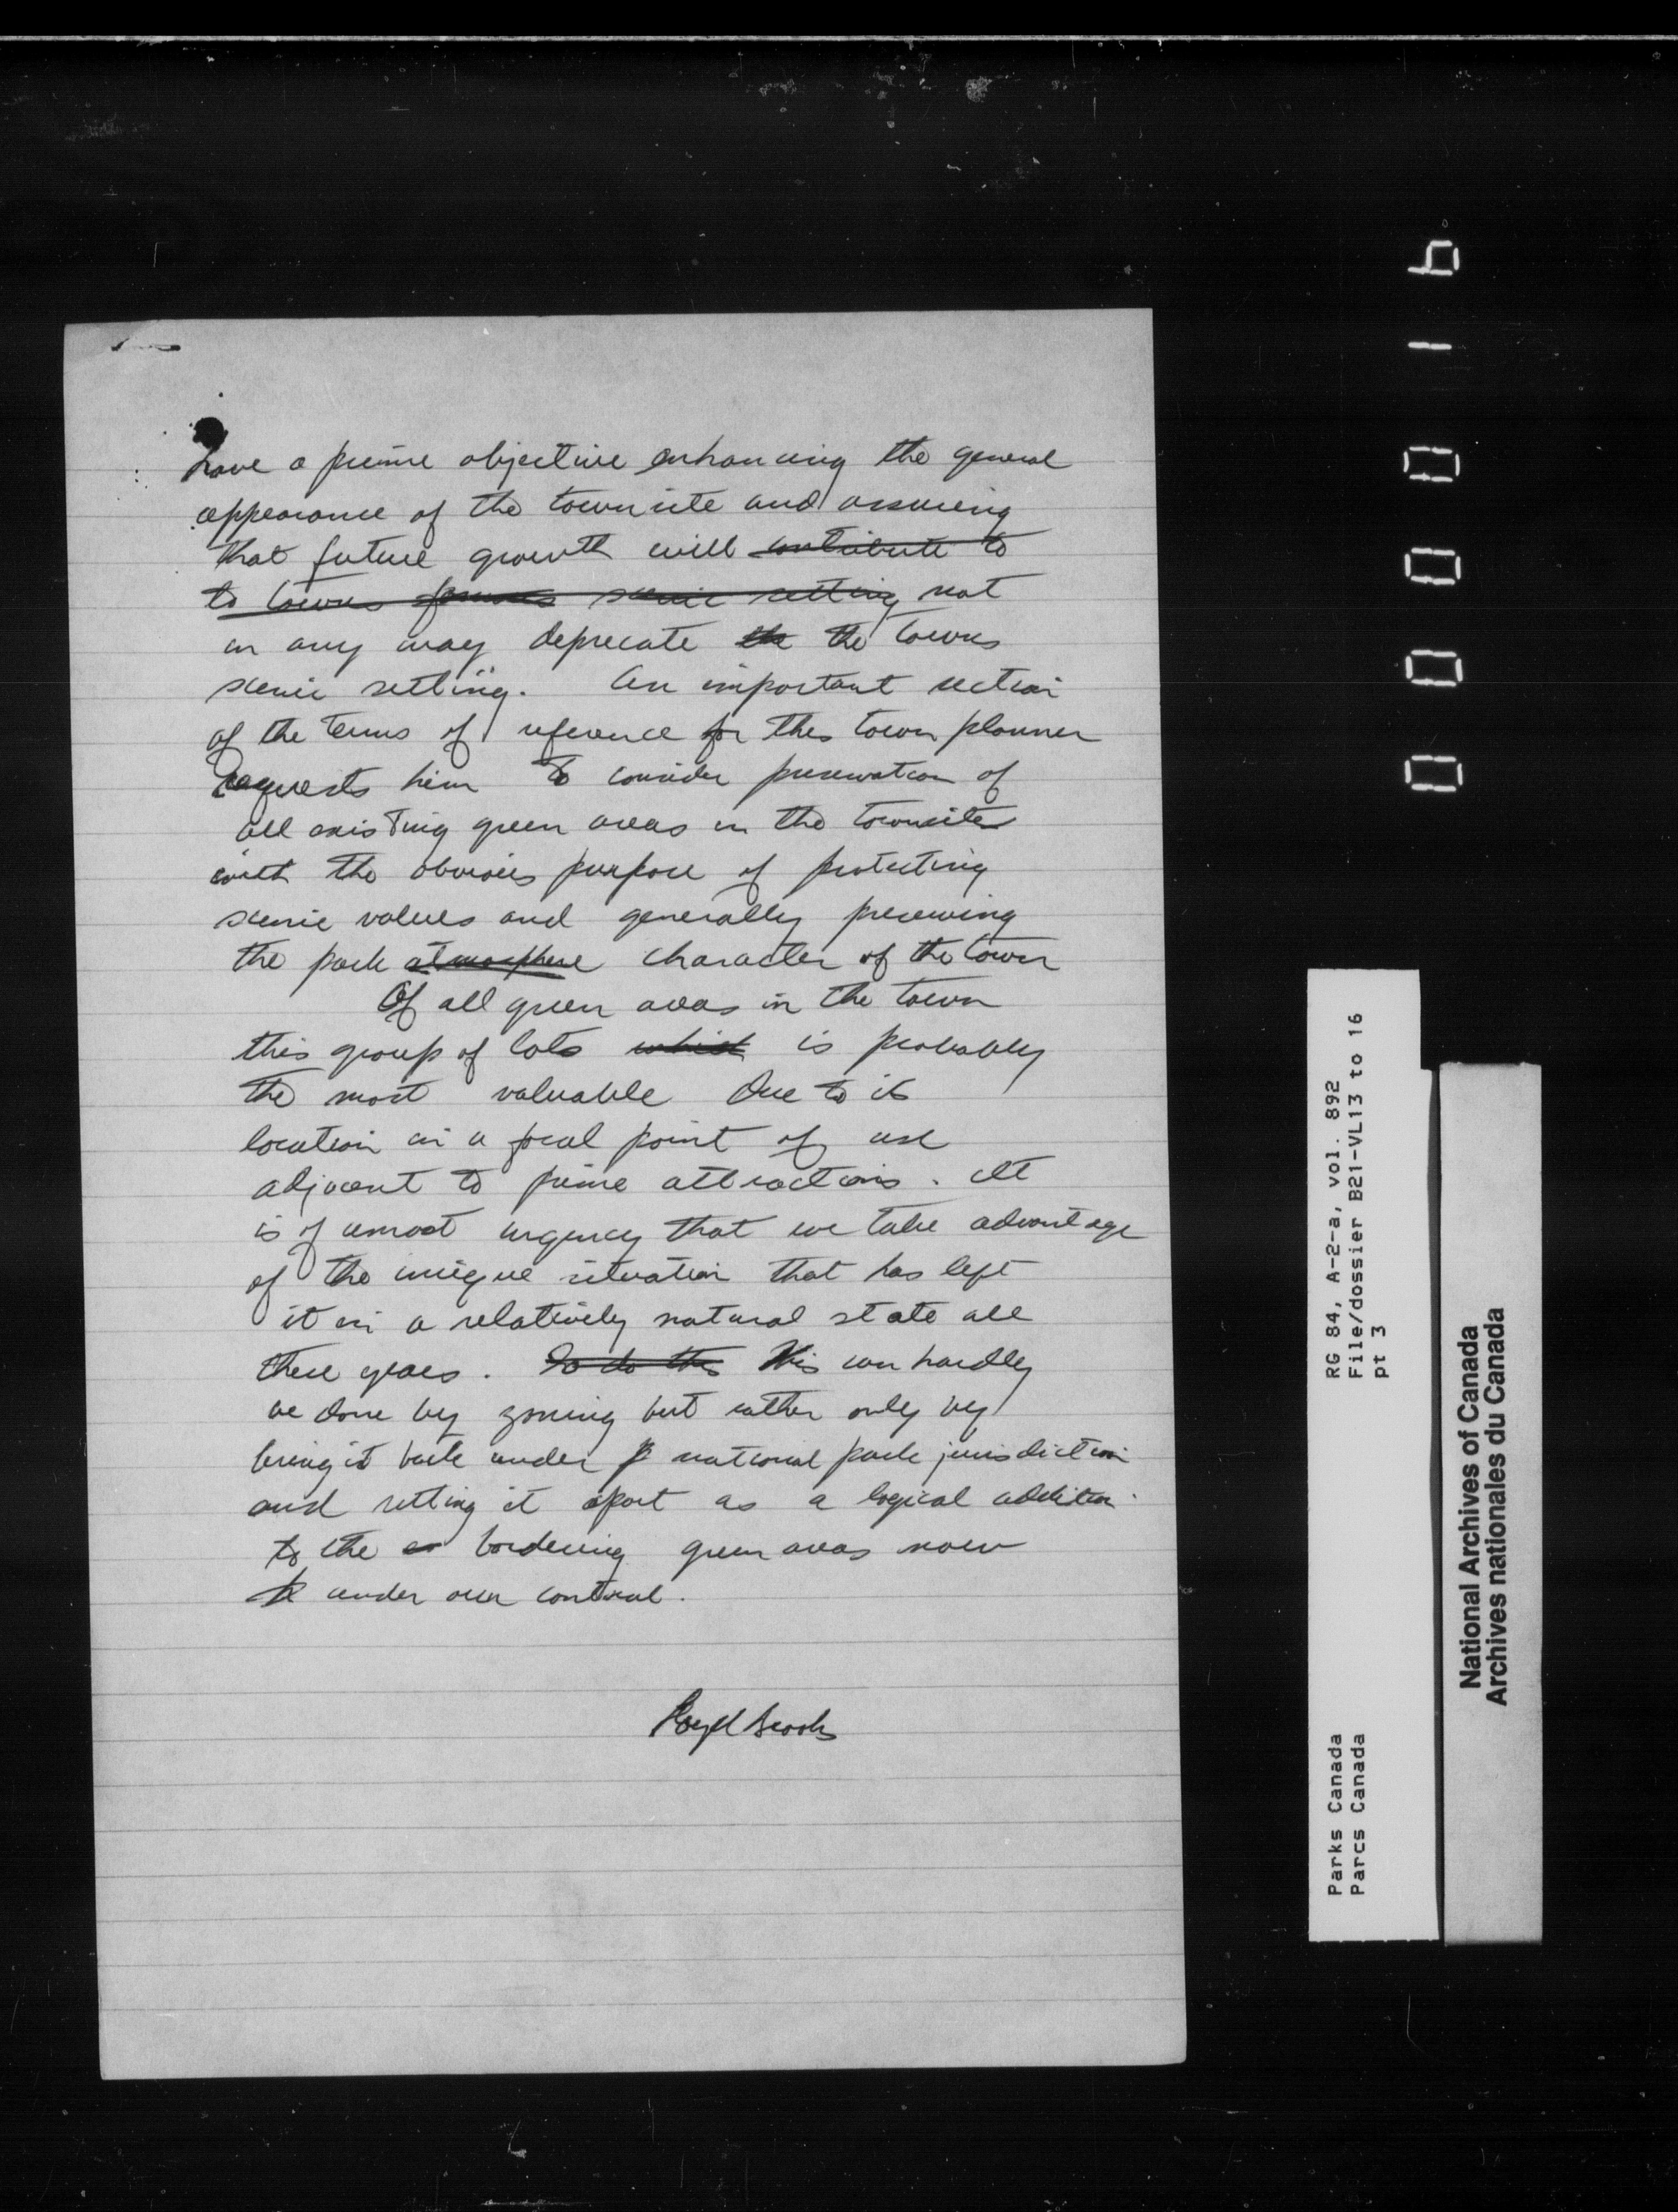 have a prime objective enhancing the general
appearance of the townsite and assuring
that future growth will contribute to
to towns famous scenic setting not
in any way deprecate the the towns
scenic setting. An important section
of the terms of reference for the town planner
requests him to consider preservation of
all existing green areas in the townsite
with the obvious purpose of protecting
scenic values and generally preserving
the park atmosphere character of the town
Of all green areas in the town
this group of lots which is probably
the most valuable due to its
location in a focal point of use
adjacent to prime attractions. It
is of umost urgency that we take advantage
of the unique situation that has left
it in a relatively natural state all
these years. To do this This can hardly
be done by zoning but rather only by
bring it back under p national park jurisdiction
and setting it apart as a logical addition
to the bordering green areas now
under our control.
Lloyd Brooks
0000016
RG 84, A-2-a, vol. 892
File/dossier B21-VL13 to 16
pt 3
Parks Canada
Parcs Canada
National Archives of Canada
Archives nationales du Canada